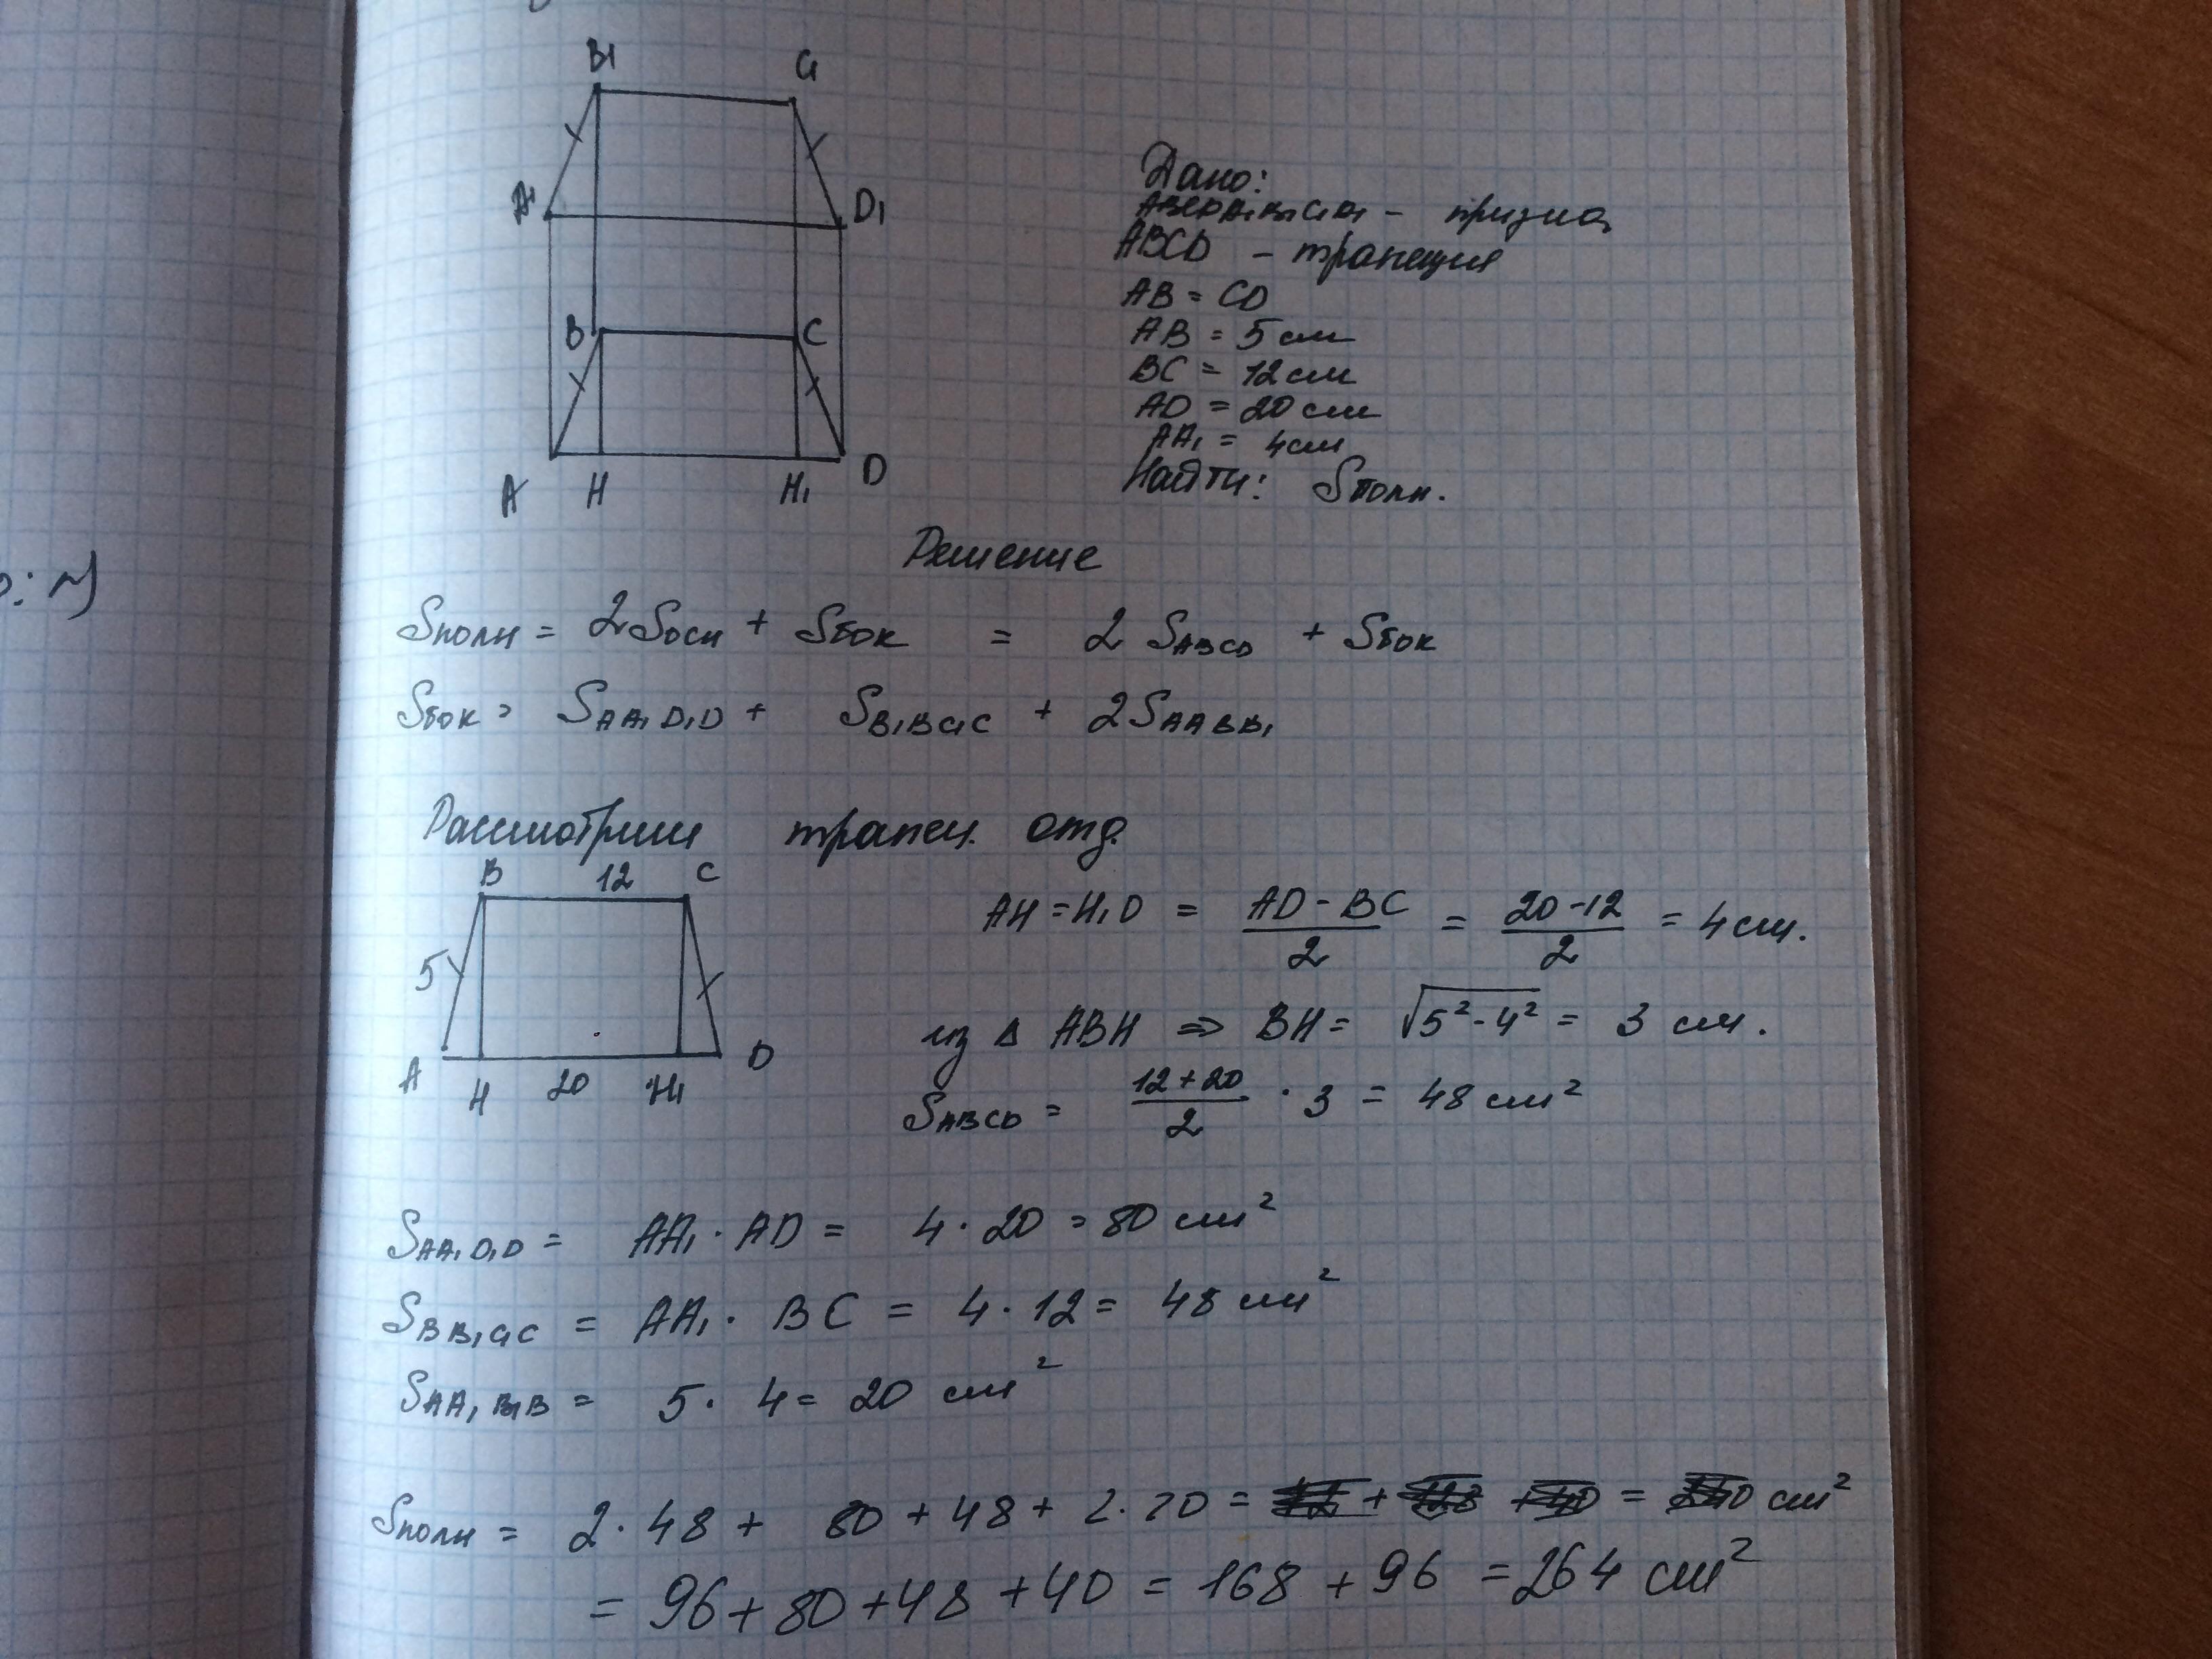 B₁ C₁
A₁ D₁
B C
A H H₁ D
Дано:
ABCDA₁B₁C₁D₁ - призма
ABCD - трапеция
AB = CD
AB = 5 см
BC = 12 см
AD = 20 см
AA₁ = 4 см
Найти: Sполн.
Решение
Sполн = 2Sосн + Sбок = 2 SABCD + Sбок
Sбок = SAA₁D₁D + SB₁BC₁C + 2SAABB₁
Рассмотрим трапец. отд.
B 12 C
5
A H 20 H₁ D
AH = H₁D = (AD - BC)/2 = (20 - 12)/2 = 4 см.
из Δ ABH ⇒ BH = √(5² - 4²) = 3 см.
SABCD = (12 + 20)/2 · 3 = 48 см²
SAA₁D₁D = AA₁ · AD = 4 · 20 = 80 см²
SBB₁C₁C = AA₁ · BC = 4 · 12 = 48 см²
SAA₁B₁B = 5 · 4 = 20 см²
Sполн = 2 · 48 + 80 + 48 + 2 · 20 = + + = см²
= 96 + 80 + 48 + 40 = 168 + 96 = 264 см²